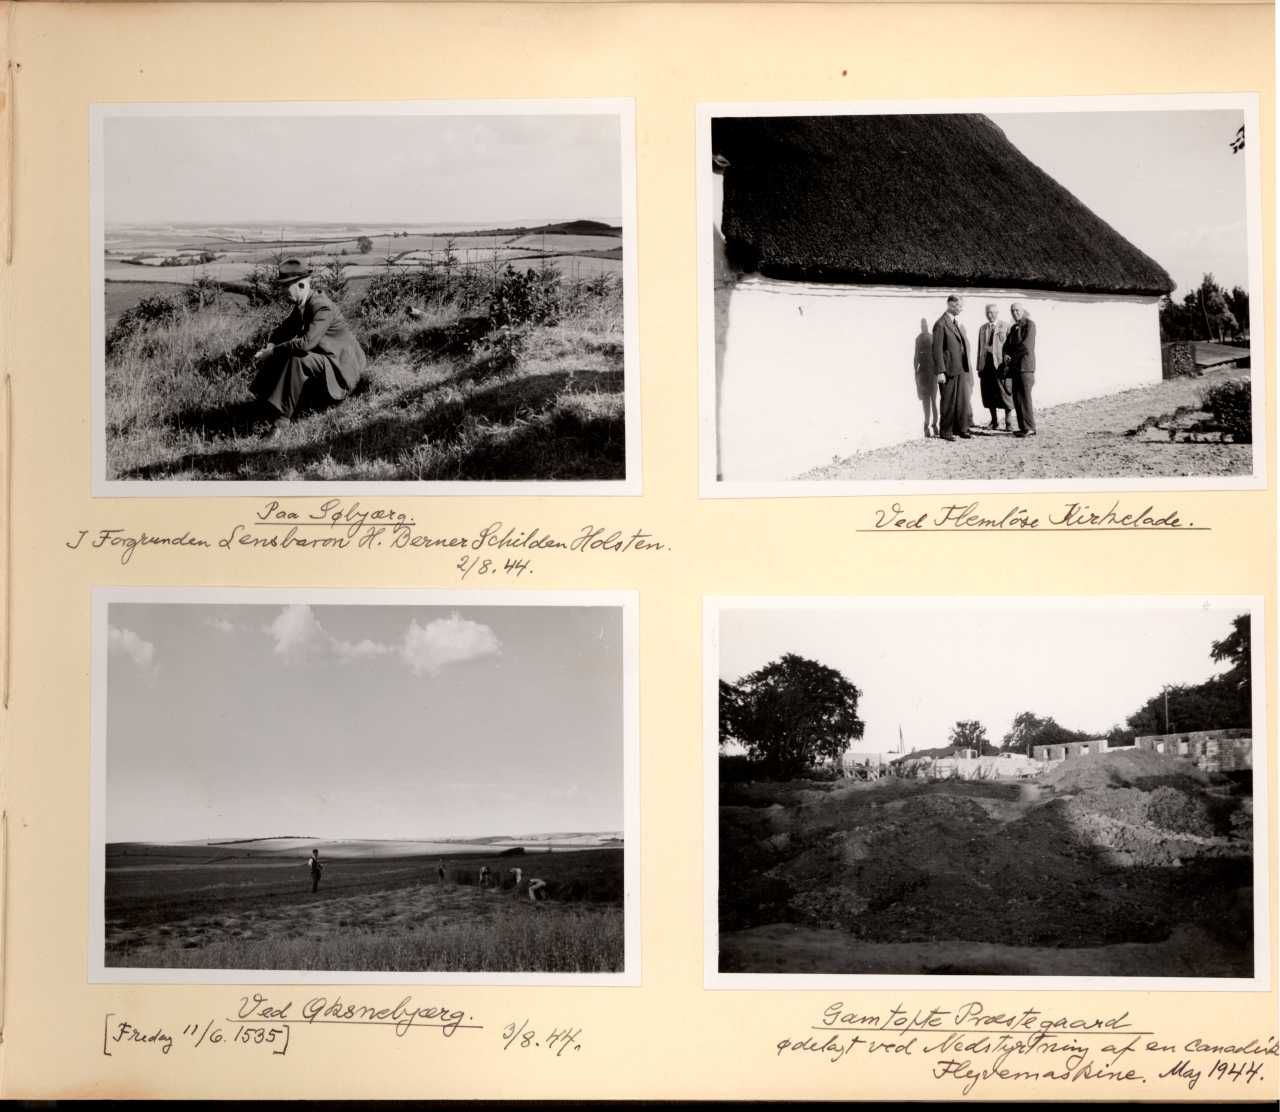 Paa Søbjærg.
I Forgrunden Lensbaron H. Berner Schilden Holsten.
2/8. 44.
Ved Flemløse Kirkelade.
Ved Øksnebjærg.
[Fredag 11/6. 1535]
3/8. 44.
Gamtofte Præstegaard
ødelagt ved Nedstyrtning af en canadisk
Flyvemaskine. Maj 1944.